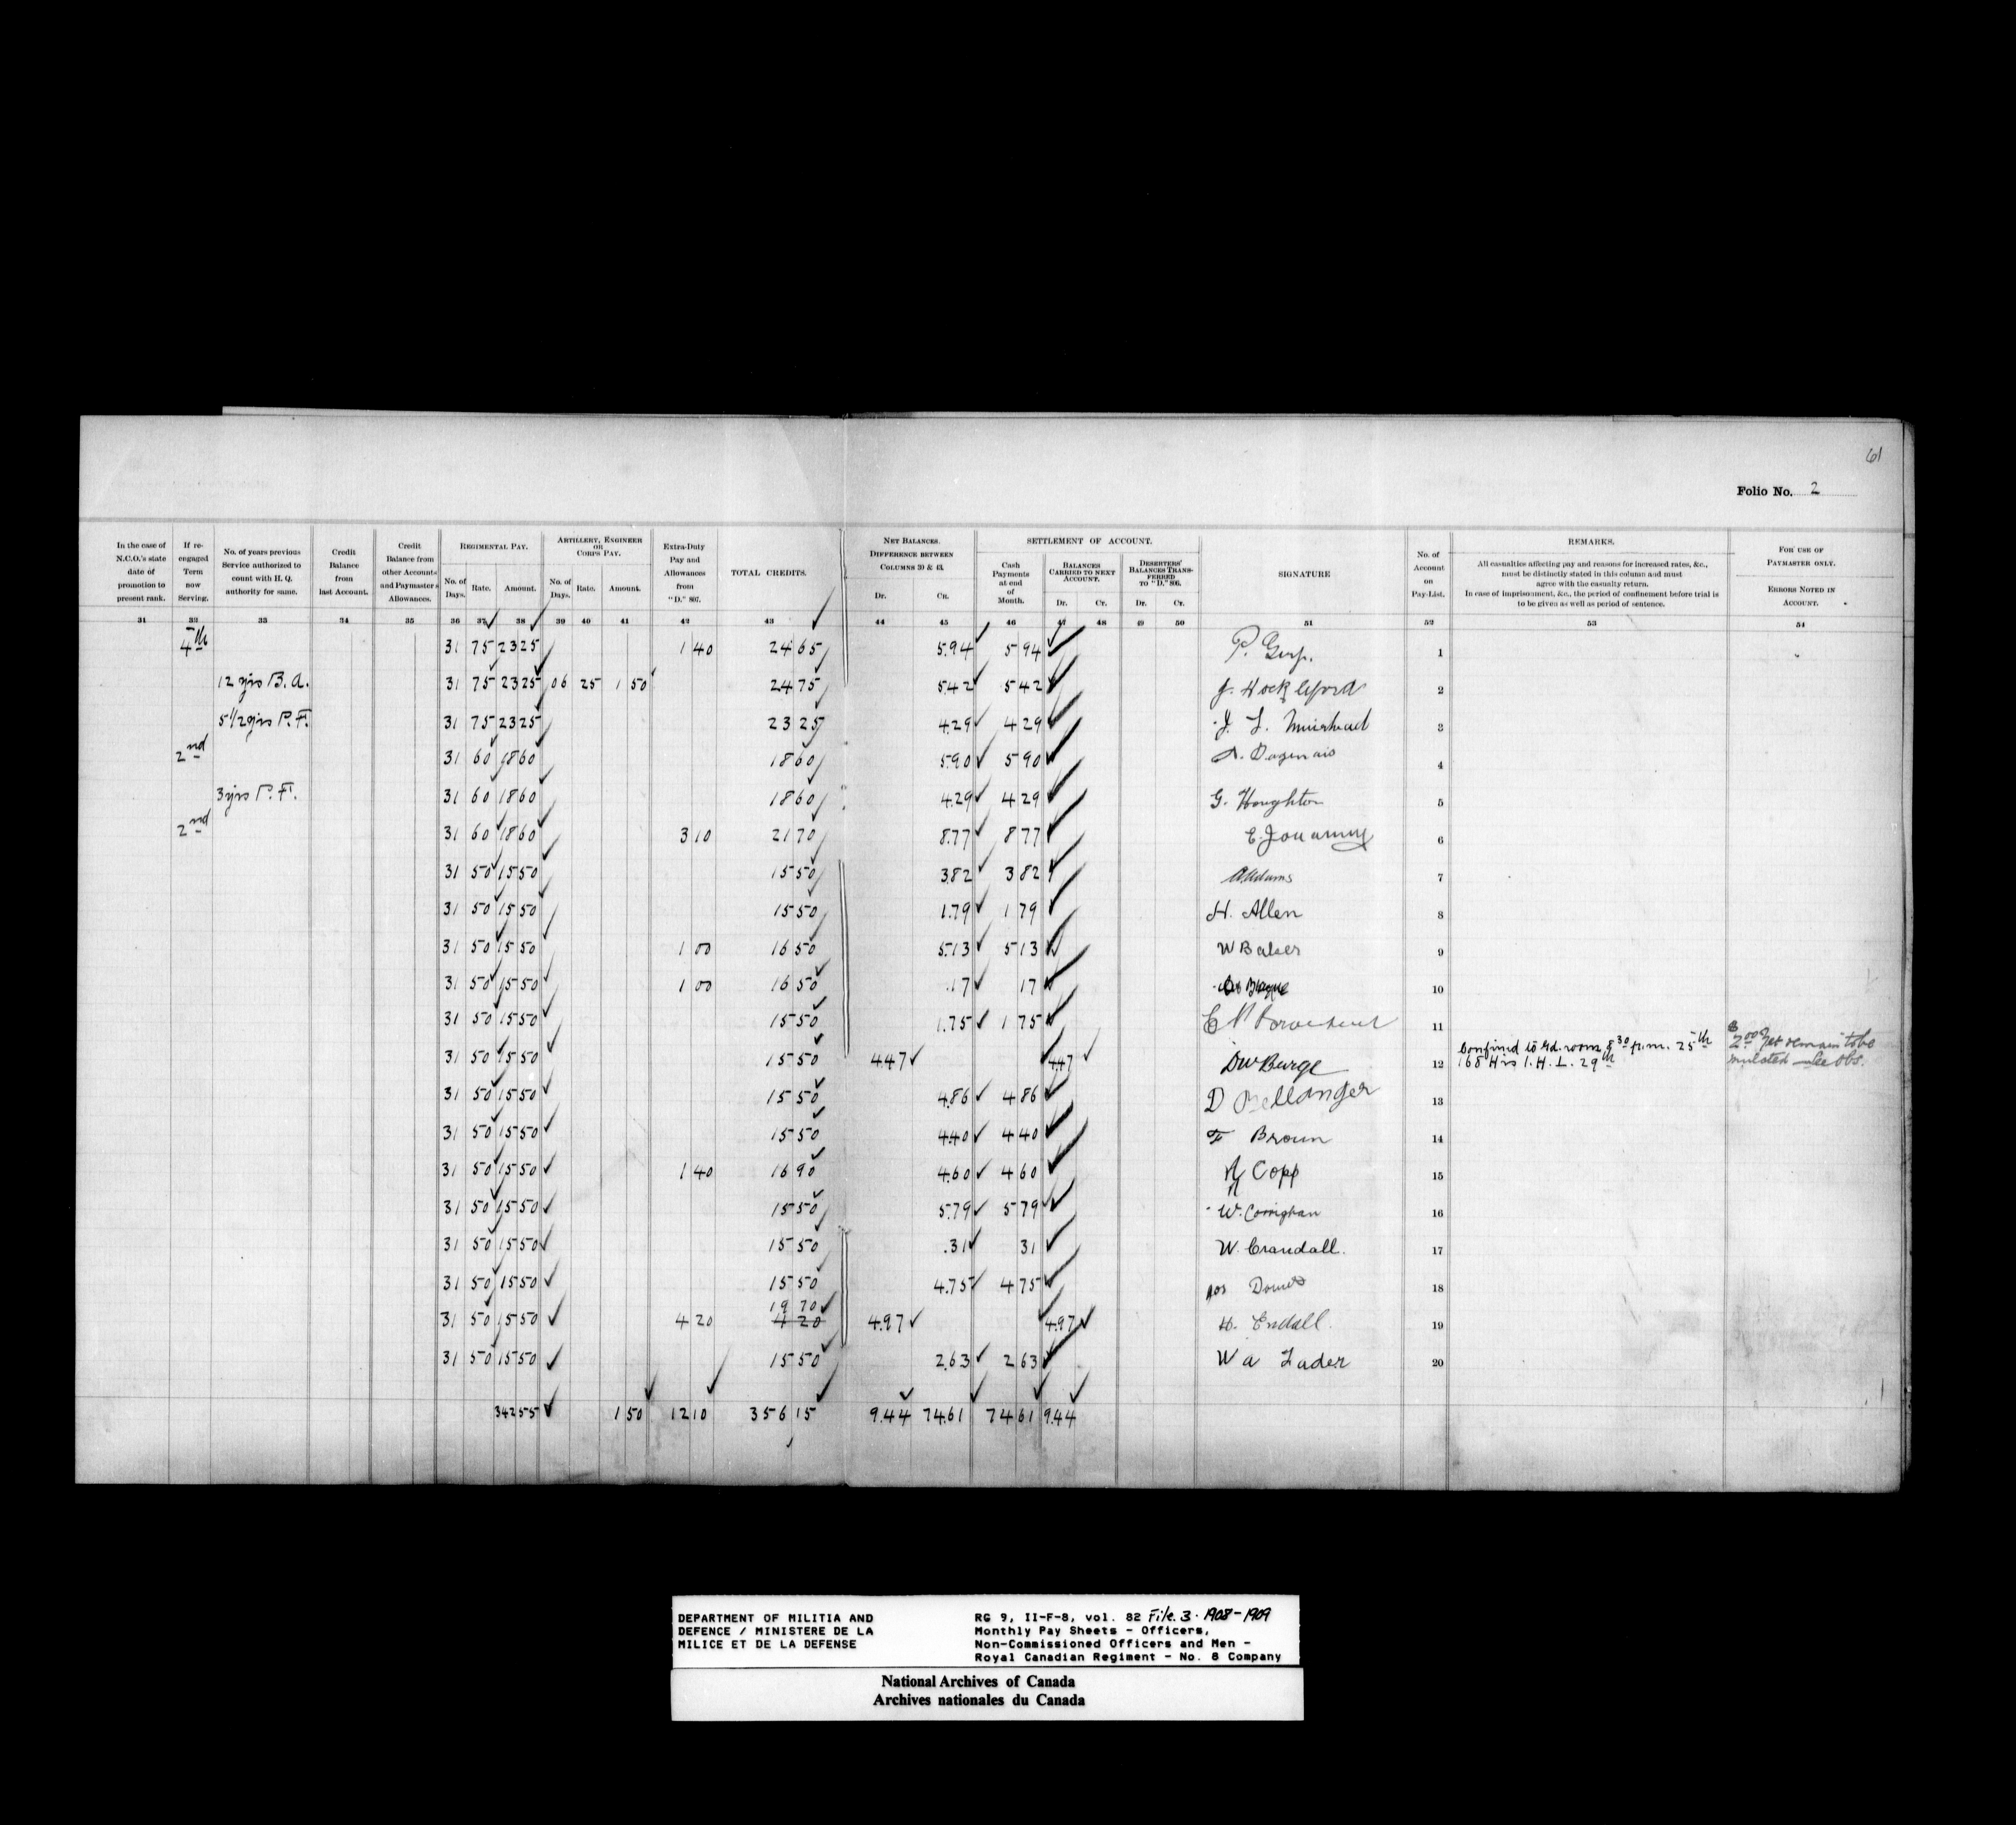 61
Folio No. 2
In the case of N.C.O.'s state date of promotion to present rank.
If re-engaged Term now Serving.
No. of years previous Service authorized to count with H. Q. authority for same.
Credit Balance from last Account.
Credit Balance from other Accounts and Paymasters Allowances.
REGIMENTAL PAY.
No. of Days. Rate. Amount.
ARTILLERY, ENGINEER OR CORPS PAY.
No. of Days. Rate. Amount.
Extra-Duty Pay and Allowances from "D." 807.
TOTAL CREDITS.
NET BALANCES. DIFFERENCE BETWEEN COLUMNS 30 & 43.
Dr. Cr.
SETTLEMENT OF ACCOUNT.
Cash Payments at end of Month.
BALANCES CARRIED TO NEXT ACCOUNT.
Dr. Cr.
DESERTERS' BALANCES TRANSFERRED TO "D." 806.
Dr. Cr.
SIGNATURE
No. of Account on Pay-List.
REMARKS.
All casualties affecting pay and reasons for increased rates, &c.,
must be distinctly stated in this column and must
agree with the casualty return.
In case of imprisonment, &c., the period of confinement before trial is
to be given as well as period of sentence.
FOR USE OF PAYMASTER ONLY.
ERRORS NOTED IN ACCOUNT.
31 32 33 34 35 36 37 38 39 40 41 42 43 44 45 46 47 48 49 50 51 52 53 54
4th 31 75 23 25 1 40 24 65 5.94 5 94 P. 1
12 yrs B.A. 31 75 23 25 06 25 1 50 24 75 5.42 5 42 J. 2
5 1/2 yrs P.F. 31 75 23 25 23 25 4.29 4 29 J. L. Muirhead 3
2nd 31 60 18 60 18 60 5.90 5 90 Dagenais 4
3 yrs P.F. 31 60 18 60 18 60 4.29 4 29 G. Houghton 5
2nd 31 60 18 60 3 10 21 70 8.77 8 77 E. Jouanny 6
31 50 15 50 15 50 3.82 3 82 A Adams 7
31 50 15 50 15 50 1.79 1 79 H. Allen 8
31 50 15 50 1 00 16 50 5.13 5 13 W Baker 9
31 50 15 50 1 00 16 50 .17 17 10
31 50 15 50 15 50 1.75 1 75 11
31 50 15 50 15 50 4.47 4.47 DW Barge 12 Confined to Gd. room 8 30 p.m. 25th
168 Hrs I.H.L. 29th
$2.00 yet remain to be
mulcted see Obs.
31 50 15 50 15 50 4.86 4 86 D Bellanger 13
31 50 15 50 15 50 4.40 4 40 F Brown 14
31 50 15 50 1 40 16 90 4.60 4 60 H Copp 15
31 50 15 50 15 50 5.79 5 79 W. Corrighan 16
31 50 15 50 15 50 .31 31 W. Crandall. 17
31 50 15 50 15 50 4.75 4 75 Jos 18
31 50 15 50 4 20 19 70 4 20 4.97 4.97 H. Endall. 19
31 50 15 50 15 50 2.63 2 63 W A Lader 20
342 55 1 50 12 10 356 15 9.44 74.61 74 61 9.44
DEPARTMENT OF MILITIA AND
DEFENCE / MINISTERE DE LA
MILICE ET DE LA DEFENSE
RG 9, II-F-8, vol. 82 File 3. 1908-1909
Monthly Pay Sheets - Officers,
Non-Commissioned Officers and Men -
Royal Canadian Regiment - No. 8 Company
National Archives of Canada
Archives nationales du Canada